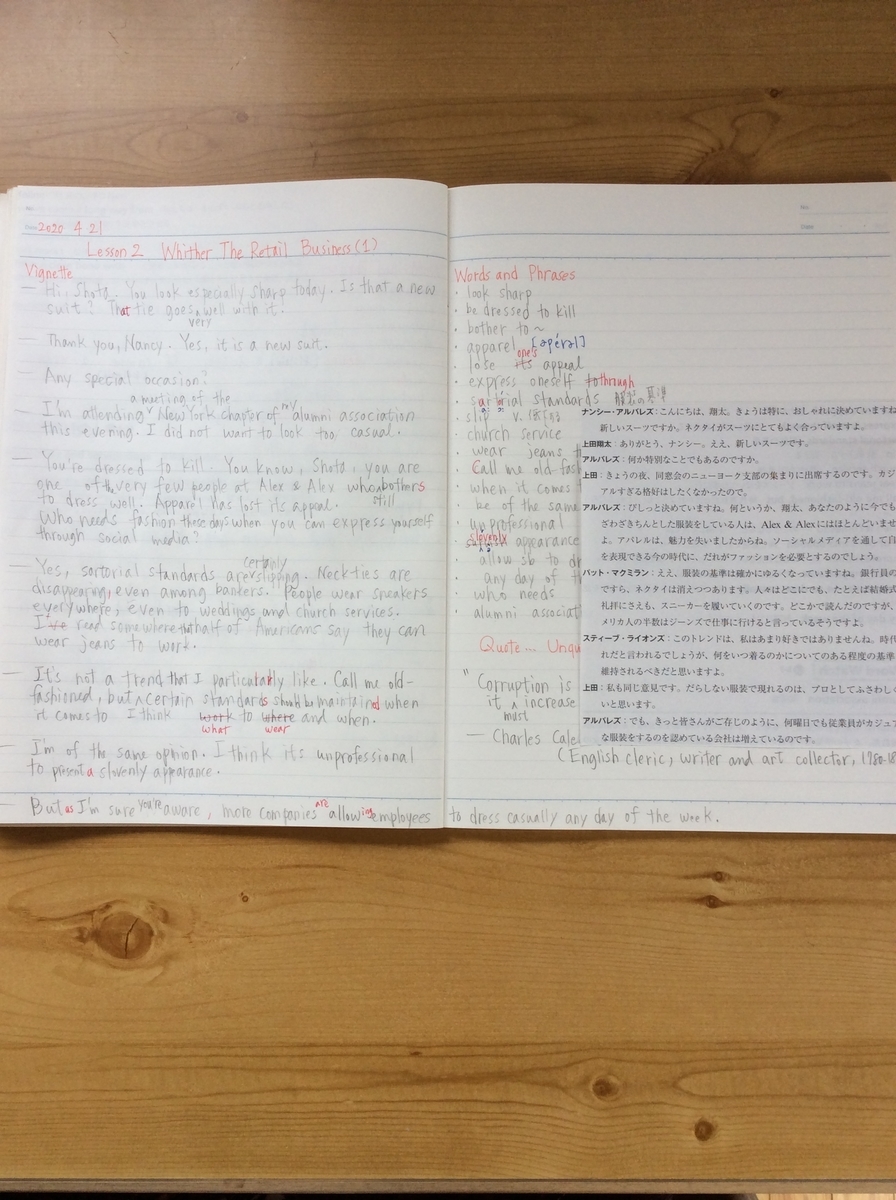 2020 4 21
Lesson 2 Whither The Retail Business (1)
Vignette
— Hi, Shota. You look especially sharp today. Is that a new
suit? That tie goes very well with it!
— Thank you, Nancy. Yes, it is a new suit.
— Any special occasion?
— I'm attending a meeting of the New York chapter of my alumni association
this evening. I did not want to look too casual.
— You're dressed to kill. You know, Shota, you are
one of the very few people at Alex & Alex who still bothers
to dress well. Apparel has lost its appeal.
Who needs fashion these days when you can express yourself
through social media?
— Yes, sortorial standards are certainly slipping. Neckties are
disappearing, even among bankers. People wear sneakers
everywhere, even to weddings and church services.
I've read somewhere that half of Americans say they can
wear jeans to work.
— It's not a trend that I particularly like. Call me old-
fashioned, but I think certain standards should be maintained when
it comes to what work to wear where and when.
— I'm of the same opinion. I think its unprofessional
to present a slovenly apparance.
— But as I'm sure you're aware, more companies are allowing employees to dress casually any day of the week.
Words and Phrases
・look sharp
・be dressed to kill
・bother to ~
・apparel [əpǽrəl]
・lose its one's appeal
・express oneself to through
・sartorial standards 服装の基準
・slip v.
・church service
・wear jeans
・Call me old-fas
・when it comes
・be of the same
・unprofessional
・slovenly appearance
・allow sb to dr
・any day of
・who needs
・alumni associat
Quote... Unqu
"Corruption is
it must increase
— Charles Cale
(English cleric, writer and art collector, 1780-18
ナンシー・アルバレズ：こんにちは、翔太。きょうは特に、おしゃれに決めていますね
新しいスーツですか。ネクタイがスーツにとてもよく合っていますよ。
上田翔太：ありがとう、ナンシー。ええ、新しいスーツです。
アルバレズ：何か特別なことでもあるのですか。
上田：きょうの夜、同窓会のニューヨーク支部の集まりに出席するのです。カジ
アルすぎる格好はしたくなかったので。
アルバレズ：びしっと決めていますね。何というか、翔太、あなたのように今でも
ざわざきちんとした服装をしている人は、Alex & Alexにはほとんどいませ
よ。アパレルは、魅力を失いましたからね。ソーシャルメディアを通して自
を表現できる今の時代に、だれがファッションを必要とするのでしょう。
パット・マクミラン：ええ、服装の基準は確かにゆるくなっていますね。銀行員の
ですら、ネクタイは消えつつあります。人々はどこにでも、たとえば結婚式
礼拝にさえも、スニーカーを履いていくのです。どこかで読んだのですが、
メリカ人の半数はジーンズで仕事に行けると言っているそうですよ。
スティーブ・ライオンズ：このトレンドは、私はあまり好きではありませんね。時代
れだと言われるでしょうが、何をいつ着るのかについてのある程度の基準
維持されるべきだと思いますよ。
上田：私も同じ意見です。だらしない服装で現れるのは、プロとしてふさわしく
いと思います。
アルバレズ：でも、きっと皆さんがご存じのように、何曜日でも従業員がカジュア
な服装をするのを認めている会社は増えているのです。